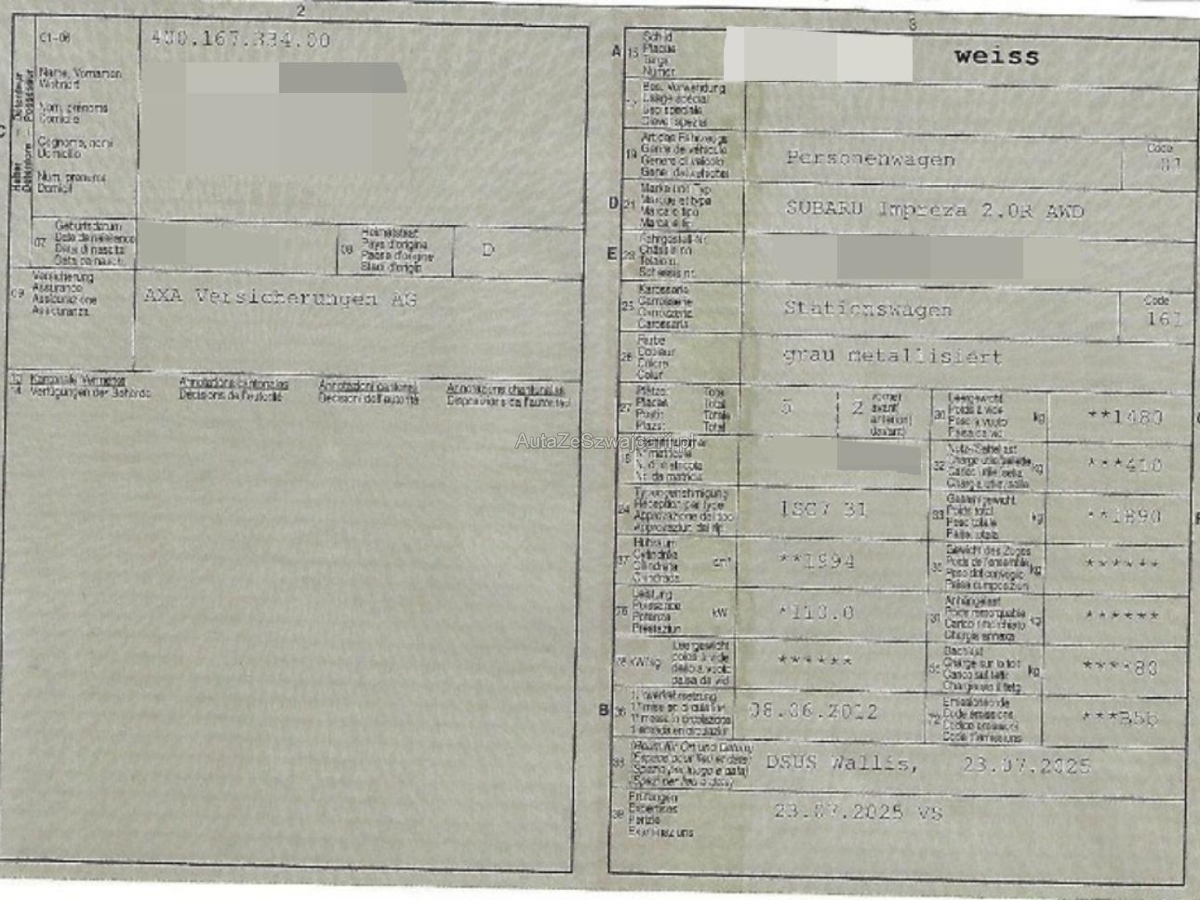 2
C1-06
400.167.334.00
Name, Vornamen
Wohnort
Nom, prénoms
Domicile
Cognome, nomi
Domicilio
Num, prenums
Domicil
C
07
Geburtsdatum
Date de naissance
Data di nascita
08
Heimatstaat
Pays d'origine
Paese d'origine
Stadi d'origin
D
09
Versicherung
Assurance
Assicurazione
Assicuranza
AXA Versicherungen AG
13
14
Kantonale Vermerke
Verfügungen der Behörde
Annotations cantonales
Décisions de l'autorité
Annotazioni cantonali
Decisioni dell'autorità
Annotaziuns chantunalas
Disposiziuns da l'autoritad
AutaZeSzwajcarii.pl
3
A
15
Schild
Plaque
Targa
Numer
weiss
17
Bes. Verwendung
Usage spécial
Uso speciale
Diever spezial
19
Art des Fahrzeugs
Genre de véhicule
Genere di veicolo
Gener dal vehichel
Personenwagen
Code
01
D
21
Marke und Typ
Marque et type
Marca e tipo
Marca e tip
SUBARU Impreza 2.0R AWD
E
23
Fahrgestell-Nr.
Châssis no
Telaio n.
Schassis nr.
25
Karosserie
Carrosserie
Carrozzeria
Carossaria
Stationswagen
Code
161
26
Farbe
Couleur
Colore
Colur
grau metallisiert
27
Plätze: Total
Places: Total
Posti: Totale
Plazs: Total
5
2
vorne)
avant)
anteriori)
davant)
30
Leergewicht
Poids à vide
Peso a vuoto
Paisa da vid
kg
**1480
18
Stammnummer
N° matricule
N. di matricola
Nr. da matricla
32
Nutz-/Sattellast
Charge utile/sellette
Carico utile/sella
Chargia utila/sella
kg
***410
24
Typengenehmigung
Réception par type
Approvazione del tipo
Approvaziun dal tip
1SC7 31
33
Gesamtgewicht
Poids total
Peso totale
Paisa totala
kg
**1890
37
Hubraum
Cylindrée
Cilindrata
Cilindrada
cm³
**1994
35
Gewicht des Zuges
Poids de l'ensemble
Peso del convoglio
Paisa cumposiziun
kg
******
76
Leistung
Puissance
Potenza
Prestaziun
kW
*110.0
31
Anhängelast
Poids remorquable
Carico rimorchiato
Chargia annexa
kg
******
78
kW/kg
Leergewicht
poids à vide
peso a vuoto
paisa da vid
******
55
Dachlast
Charge sur le toit
Carico sul tetto
Chargia sin il tetg
kg
****80
B
36
1. Inverkehrsetzung
1re mise en circulation
1a messa in circolazione
1. entrada en circulaziun
08.06.2012
72
Emissionscode
Code émissions
Codice emissioni
Code d'emissiuns
***B5b
38
(Raum für Ort und Datum)
(Espace pour lieu et date)
(Spazio per luogo e data)
(Spazi per lieu e data)
DSUS Wallis, 23.07.2025
39
Prüfungen
Expertises
Perizie
Examinaziuns
23.07.2025 VS